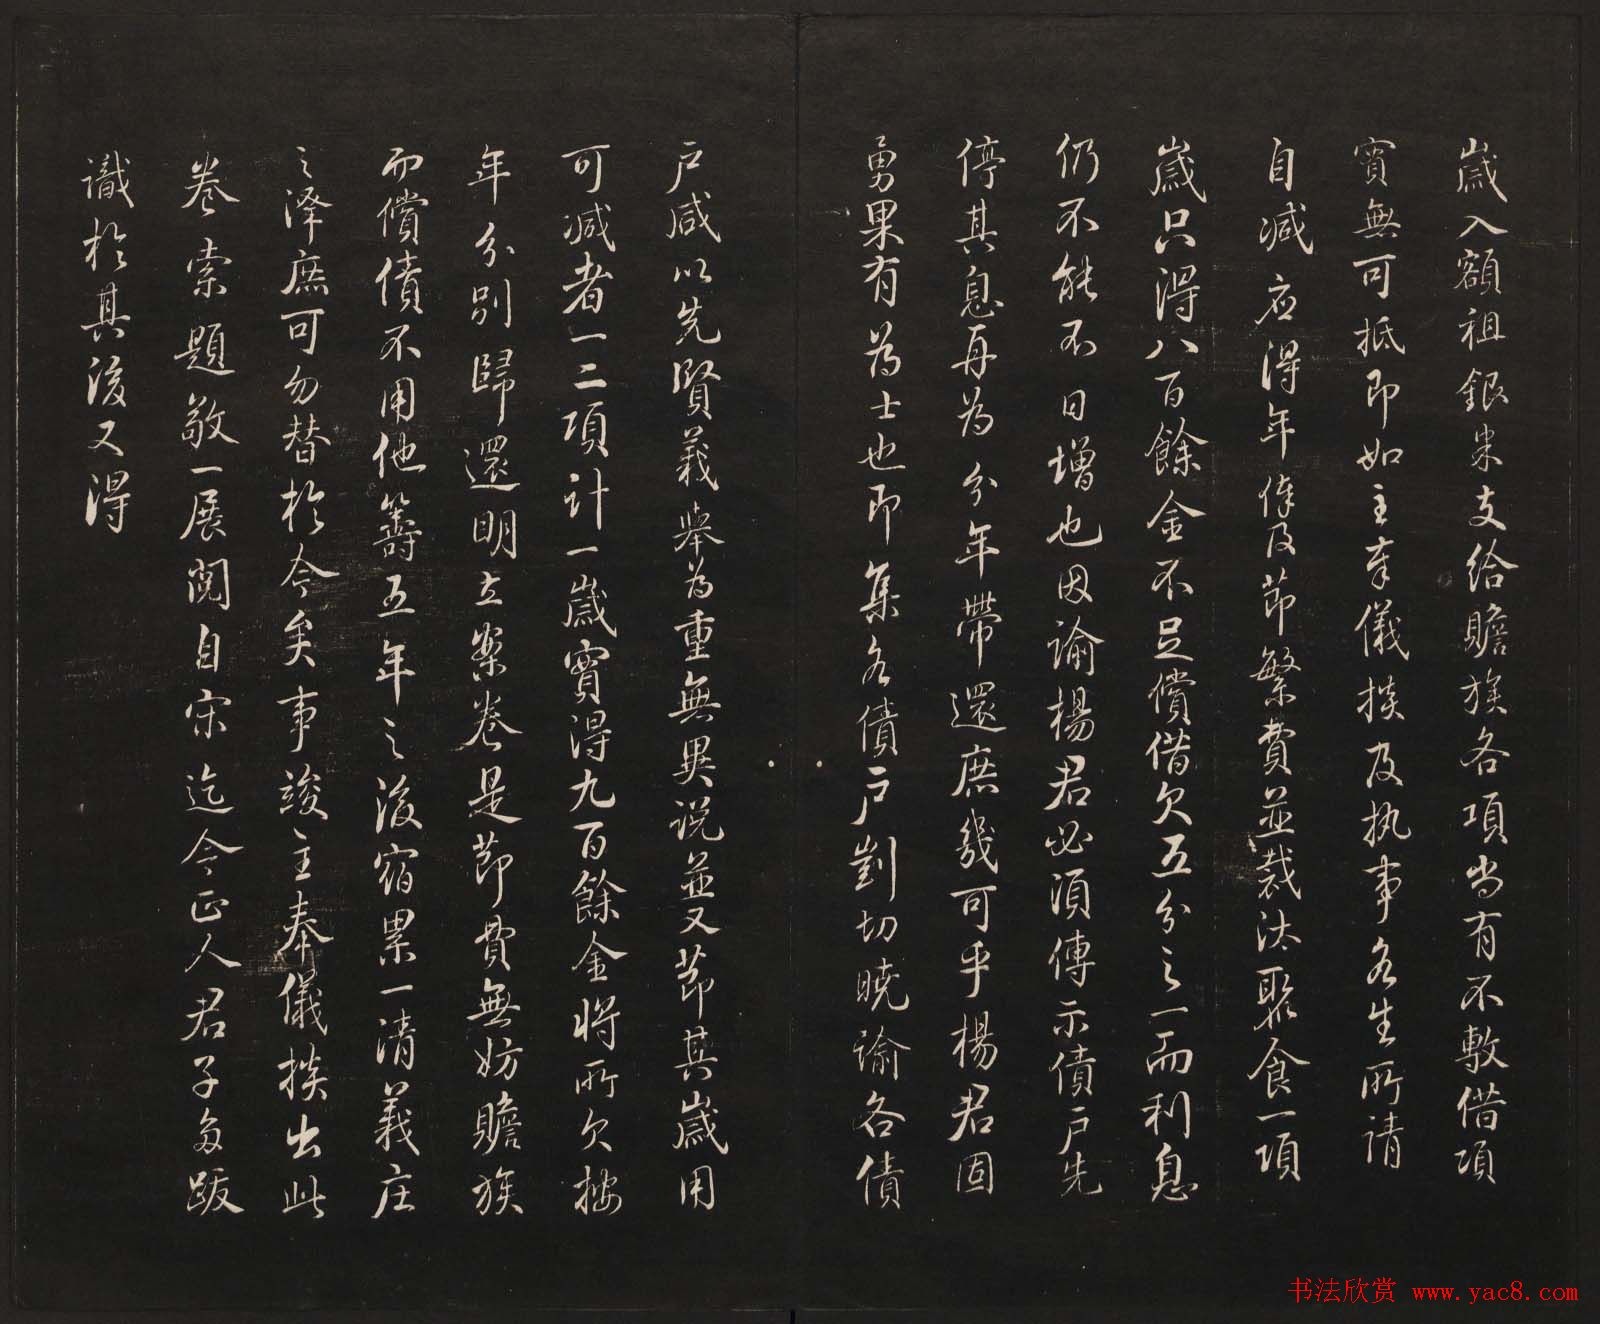 歲入額租銀米支給贍族各項尚有不敷借項
實無可抵即如主奉儀掞及执事各生所請
自减应得年俸及節繁費並裁汰聚食一項
歲只得八百餘金不足償借欠五分之一而利息
仍不能不日增也因諭楊君必須傳示債户先
停其息再為分年帶還庶幾可乎楊君固
勇果有為士也即集各債户剴切曉諭各債
户咸以先賢義舉為重無異说並又節其歲用
可减者一二項計一歲實得九百餘金将所欠按
年分别歸還明立案卷是節費無妨贍族
而償債不用他籌五年之後宿累一清義庄
之澤庶可勿替於今矣事竣主奉儀掞出此
卷索題敬一展閲自宋迄今正人君子多跋
識於其後又得
书法欣赏 www.yac8.com